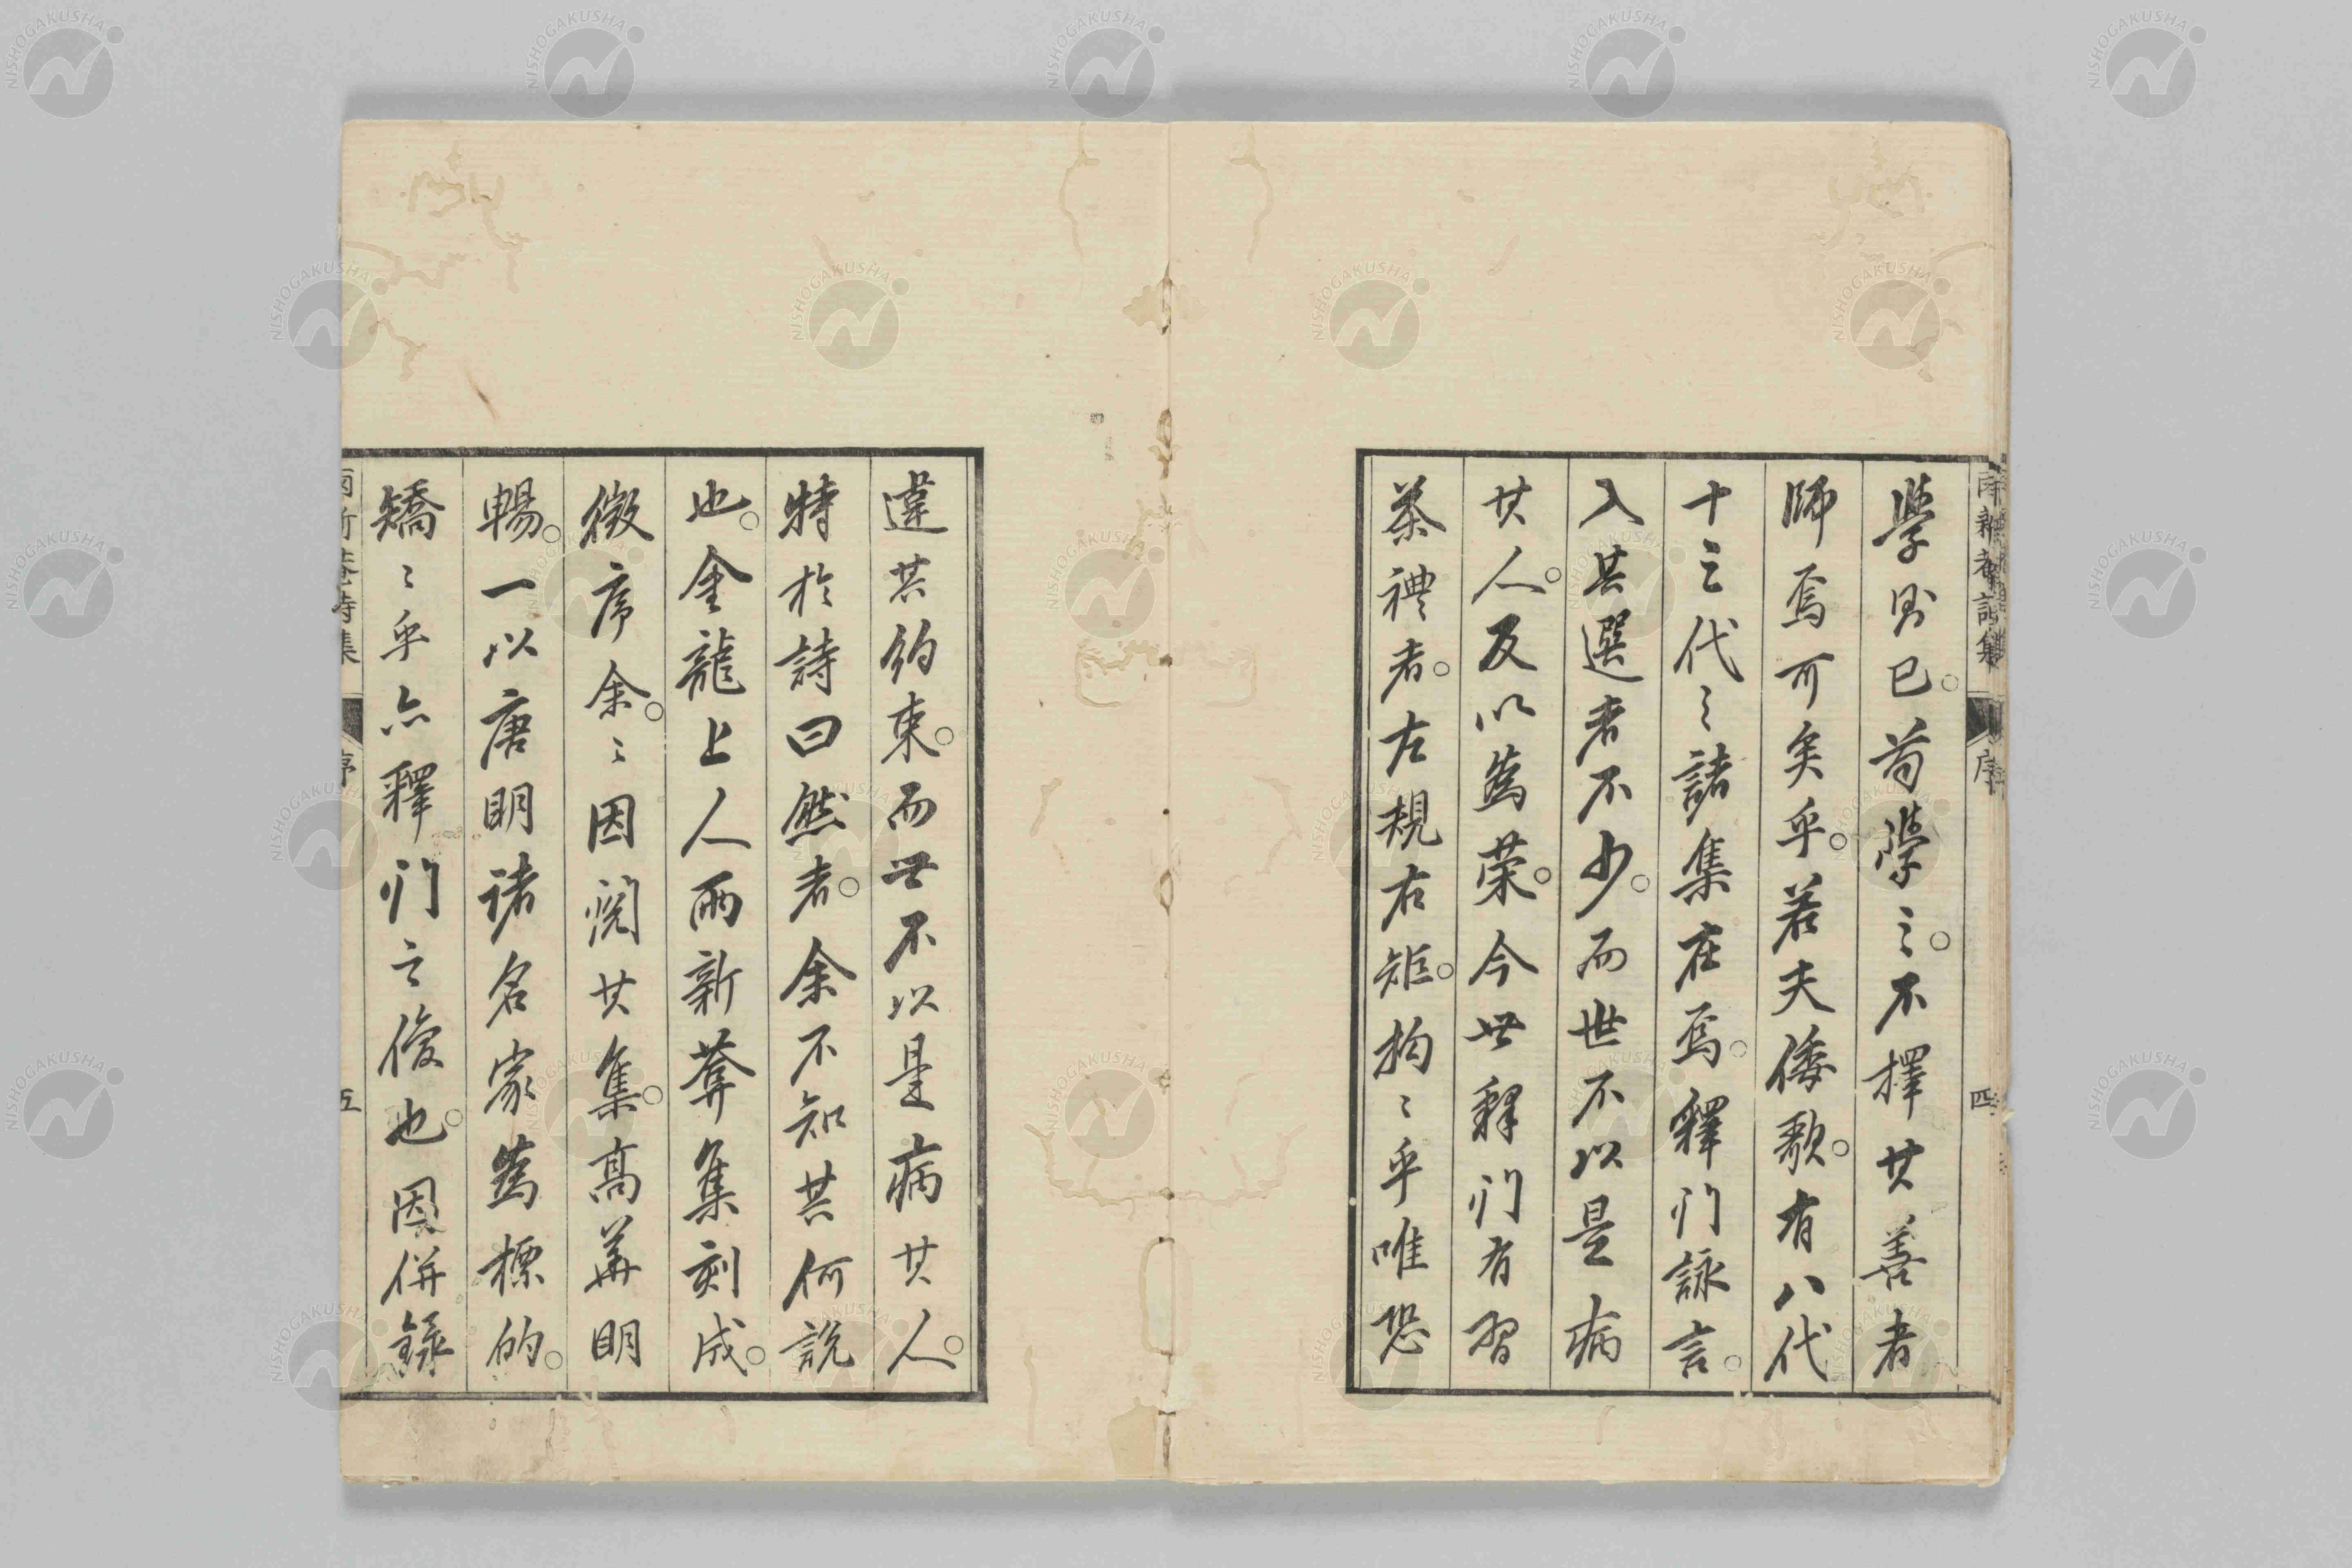 學則已。苟學之。不擇其善者
師焉可矣乎。若夫倭歌。有八代
十三代之諸集在焉。釋門詠言。
入其選者不少。而世不以是病
其人。反以為榮。今世釋門有習
茶禮者。左規右矩。拘〻乎唯恐
違其約束。而世不以是病其人。
特於詩曰然者。余不知其何説
也。金龍上人兩新菴集刻成。
徵序余。〻因閲其集。高華明
暢。一以唐明諸名家為標的。
矯〻乎亦釋門之俊也。因併錄
兩新菴詩集
序
四
五
NISHOGAKUSHA